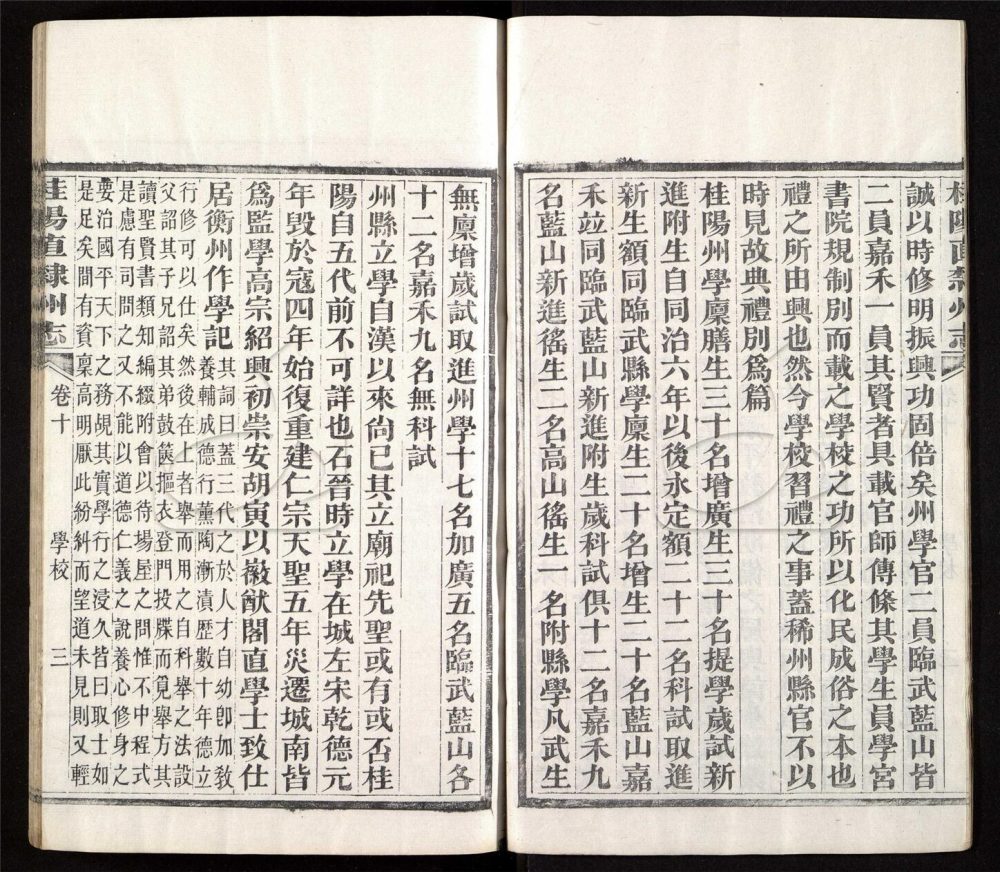 桂陽直隸州志
誠以時修明振興功固倍矣州學官二員臨武藍山皆
二員嘉禾一員其賢者具載官師傳條其學生員學宮
書院規制別而載之學校之功所以化民成俗之本也
禮之所由興也然今學校習禮之事蓋稀州縣官不以
時見故典禮別爲篇
桂陽州學廩膳生三十名增廣生三十名提學歲試新
進附生自同治六年以後永定額二十二名科試取進
新生額同臨武縣學廩生二十名增生二十名藍山嘉
禾竝同臨武藍山新進附生歲科試俱十二名嘉禾九
名藍山新進徭生二名高山徭生一名附縣學凡武生
無廩增歲試取進州學十七名加廣五名臨武藍山各
十二名嘉禾九名無科試
州縣立學自漢以來尙已其立廟祀先聖或有或否桂
陽自五代前不可詳也石晉時立學在城左宋乾德元
年毁於寇四年始復重建仁宗天聖五年災遷城南皆
爲監學高宗紹興初崇安胡寅以徽猷閣直學士致仕
居衡州作學記其詞曰蓋三代之於人才自幼卽加敎
養輔成德行薰陶漸漬歷數十年德立
行修可以仕矣然後在上者舉而用之自科舉之法設
父詔其子兄詔其弟鼓篋摳衣登門投牒而覓舉方其
讀聖賢書類知編綴附會以待場屋之問惟不中程式
是慮有司問之又不能以道德仁義之說養心修身之
要治國平天下之務覘其實學行之浸久皆曰取士如
是足矣間有資稟高明厭此紛糾而望道未見則又輕
桂陽直隸州志
卷十
學校
三